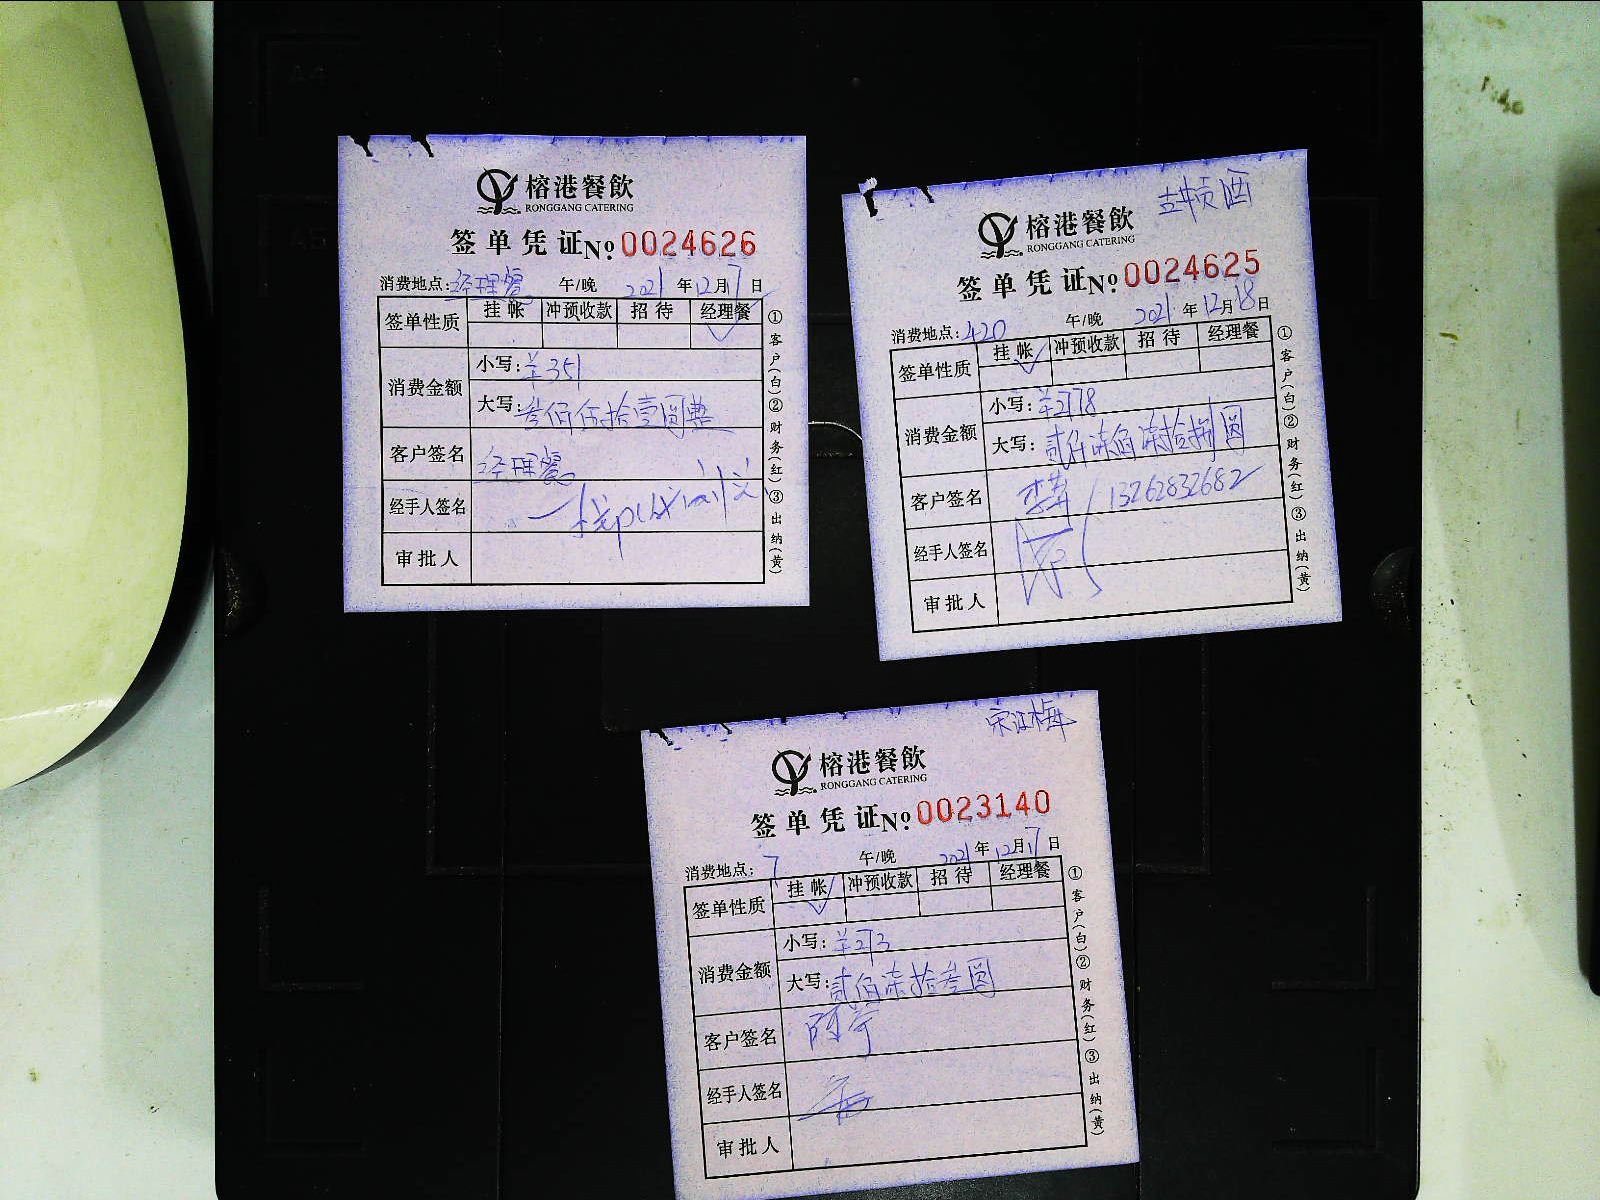 榕港餐飲
RONGGANG CATERING
签单凭证 No. 0024626
消费地点: 经理餐 午/晚 2021年12月17日
签单性质 挂帐 冲预收款 招待 经理餐 ✓
消费金额 小写: ¥351
大写: 叁佰伍拾壹圆整
客户签名 经理餐
经手人签名
审批人
①客户(白)②财务(红)③出纳(黄)
榕港餐飲
RONGGANG CATERING
签单凭证 No. 0024625
消费地点: 420 午/晚 2021年12月18日
签单性质 挂帐 ✓ 冲预收款 招待 经理餐
消费金额 小写: ¥2778
大写: 贰仟柒佰柒拾捌圆
客户签名 13262832682
经手人签名
审批人
①客户(白)②财务(红)③出纳(黄)
宋江梅
榕港餐飲
RONGGANG CATERING
签单凭证 No. 0023140
消费地点: 7 午/晚 2021年12月17日
签单性质 挂帐 ✓ 冲预收款 招待 经理餐
消费金额 小写: ¥273
大写: 贰佰柒拾叁圆
客户签名
经手人签名
审批人
①客户(白)②财务(红)③出纳(黄)